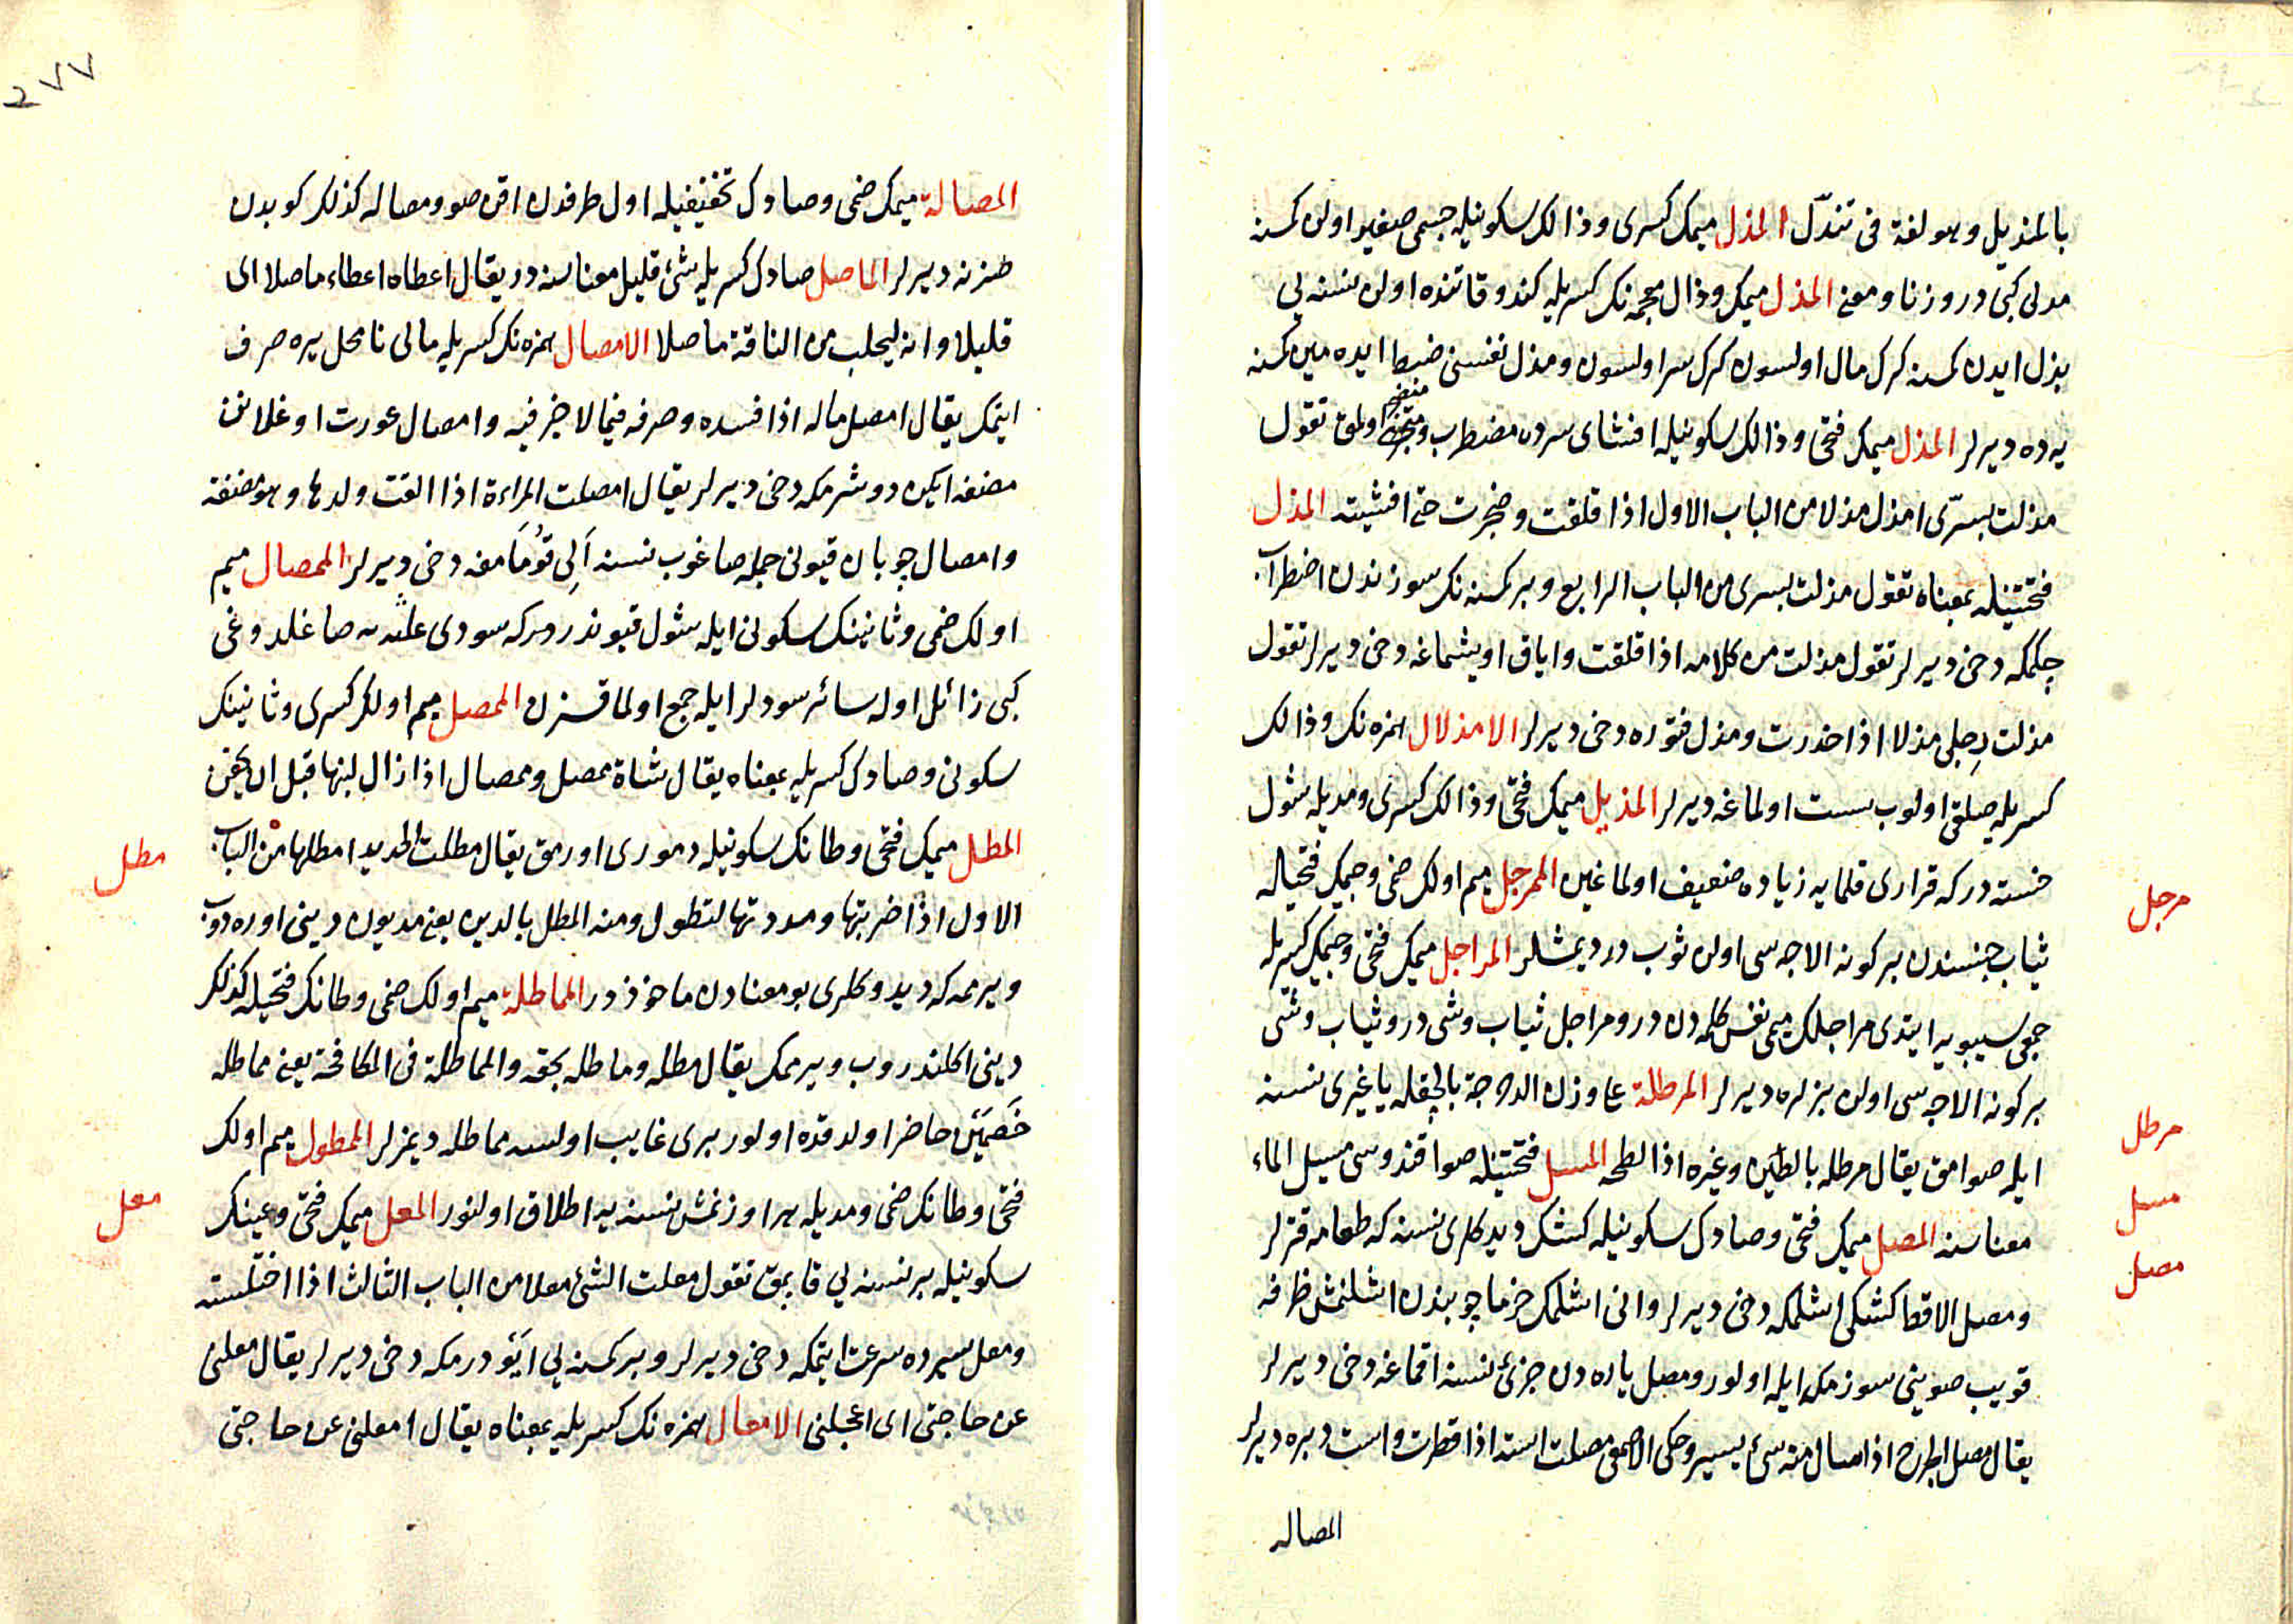 بالمنديل وهو لغة فى تندّل المذل ميمك كسرى وذالك سكونيله جسمى صغير اولن كمسنه
مدلى كبى در وزنا ومعنى المذل ميمك وذال معجمه نك كسريله كندو قاتنده اولن نسنه يى
بذل ايدن كمسنه كرك مال اولسون كرك سر اولسون ومذل نفسنى ضبط ايده مين كمسنه
يه ده ديرلر المذل ميمك فتحى وذالك سكونيله افشاى سردن مضطرب و اولمق تقول
مذلت بسرّى امذل مذلا من الباب الاول اذا قلقت وضجرت حتى افشيته المذل
فتحتينله بمعناه تقول مذلت بسرى من الباب الرابع وبر كمسنه نك سوزندن اضطراب
چكمكه دخى ديرلر تقول مذلت من كلامه اذا قلقت واياق اويشماغه دخى ديرلر تقول
مذلت رِجلى مذلا اذا خدرت ومذل فتوره دخى ديرلر الامذلال همزه نك وذالك
كسريله صلقى اولوب سست اولماغه ديرلر المذيل ميمك فتحى وذالك كسرى ومديله شول
خسته در كه قرارى قلمايه زياده ضعيف اولماغين الممرجل ميم اولك ضمى وجيمك فتحيله
ثياب جنسندن بر كونه الاجه سى اولن ثوب در ديمشلر المراجل ميمك فتحى وجيمك كسريله
جمعى سيبويه ايتدى مراجلك ميمى نفس كلمه دن در ومراجل ثياب وشى در وثياب وشى
بر كونه الاجه سى اولن بزلره ديرلر المرطلة على وزن الدحرجة بالچقله يا غيرى نسنه
ايله صوامق يقال مرطله بالطين وغيره اذا لطخه المسل فتحتينله صو اقندوسى مسيل الماء
معناسنه المصل ميمك فتحى وصادك سكونيله كشك ديدكلرى نسنه كه طعامه قترلر
ومصل الاقط كشكى اشلمكه دخى ديرلر وانى اشلمك خرما چوپندن اشلنمش ظرفه
قويب صوينى سوزمكله ايله اولور ومصل ياره دن جزئى نسنه اقماغه دخى ديرلر
يقال مصل الجرح اذا سال منه شئ يسير وحكى الاصمعى مصلت استه اذا قطرت واست دبره ديرلر
المصاله
مرجل
مرطل
مسل
مصل
٢٧٧
المصالة ميمك ضمى وصادك تخفيفيله اول طرفدن اقن صو ومصاله كذلك كوبدن
طنزنه ديرلر الماصل صادك كسريله شئ قليل معناسنه در يقال اعطاه اعطاء ماصلا اى
قليلا وانه ليحلب من الناقة ماصلا الامصال همزه نك كسريله مالى نامحل يره صرف
ايتمك يقال امصل ماله اذا افسده وصرفه فيما لا خير فيه وامصال عورت اوغلانن
مضغه ايكن دوشرمكه دخى ديرلر يقال امصلت المراءة اذا القت ولدها وهو مضغة
وامصال چوبان قيونى جمله صاغوب نسنه اَلى قوُمَامغه دخى ديرلر الممصال ميم
اولك ضمى وثانينك سكونى ايله شول قيوندر دركه سودى علبه يه صاغلدوغى
كبى زائل اوله سائر سودلر ايله جمع اولمقسزن الممصل ميم اولك كسرى وثانينك
سكونى وصادك كسريله بمعناه يقال شاة ممصل وممصال اذا زال لبنها قبل ان يحقن
المطل ميمك فتحى وطانك سكونيله دمورى اورمق يقال مطلت الحديد امطلها من الباب
الاول اذا ضربتها ومددتها لتطول ومنه المطل بالدين يعنى مديون دينى اوره دوب
ويرممه كه ديدوكلرى بو معنادن ماخوذ در المماطلة ميم اولك ضمى وطانك فتحيله كذلك
دينى اكلندروب ويرممك يقال مطله وماطله بحقه والمماطلة فى المكافحة يعنى مماطله
خَصمَين حاضر اولدقده اولور برى غايب اولسه مماطله ديمزلر الممطول ميم اولك
فتحى وطانك ضمى ومديله هر اوزنمش نسنه يه اطلاق اولنور المعل ميمك فتحى وعينك
سكونيله بر نسنه يى قاپمق تقول معلت الشئ معلا من الباب الثالث اذا اختلسته
ومعل سيرده سرعت ايتمكه دخى ديرلر وبر كمسنه يى ايَودرمكه دخى ديرلر يقال معلنى
عن حاجتى اى اعجلنى الامعال همزه نك كسريله بمعناه يقال امعلنى عن حاجتى
مطل
معل